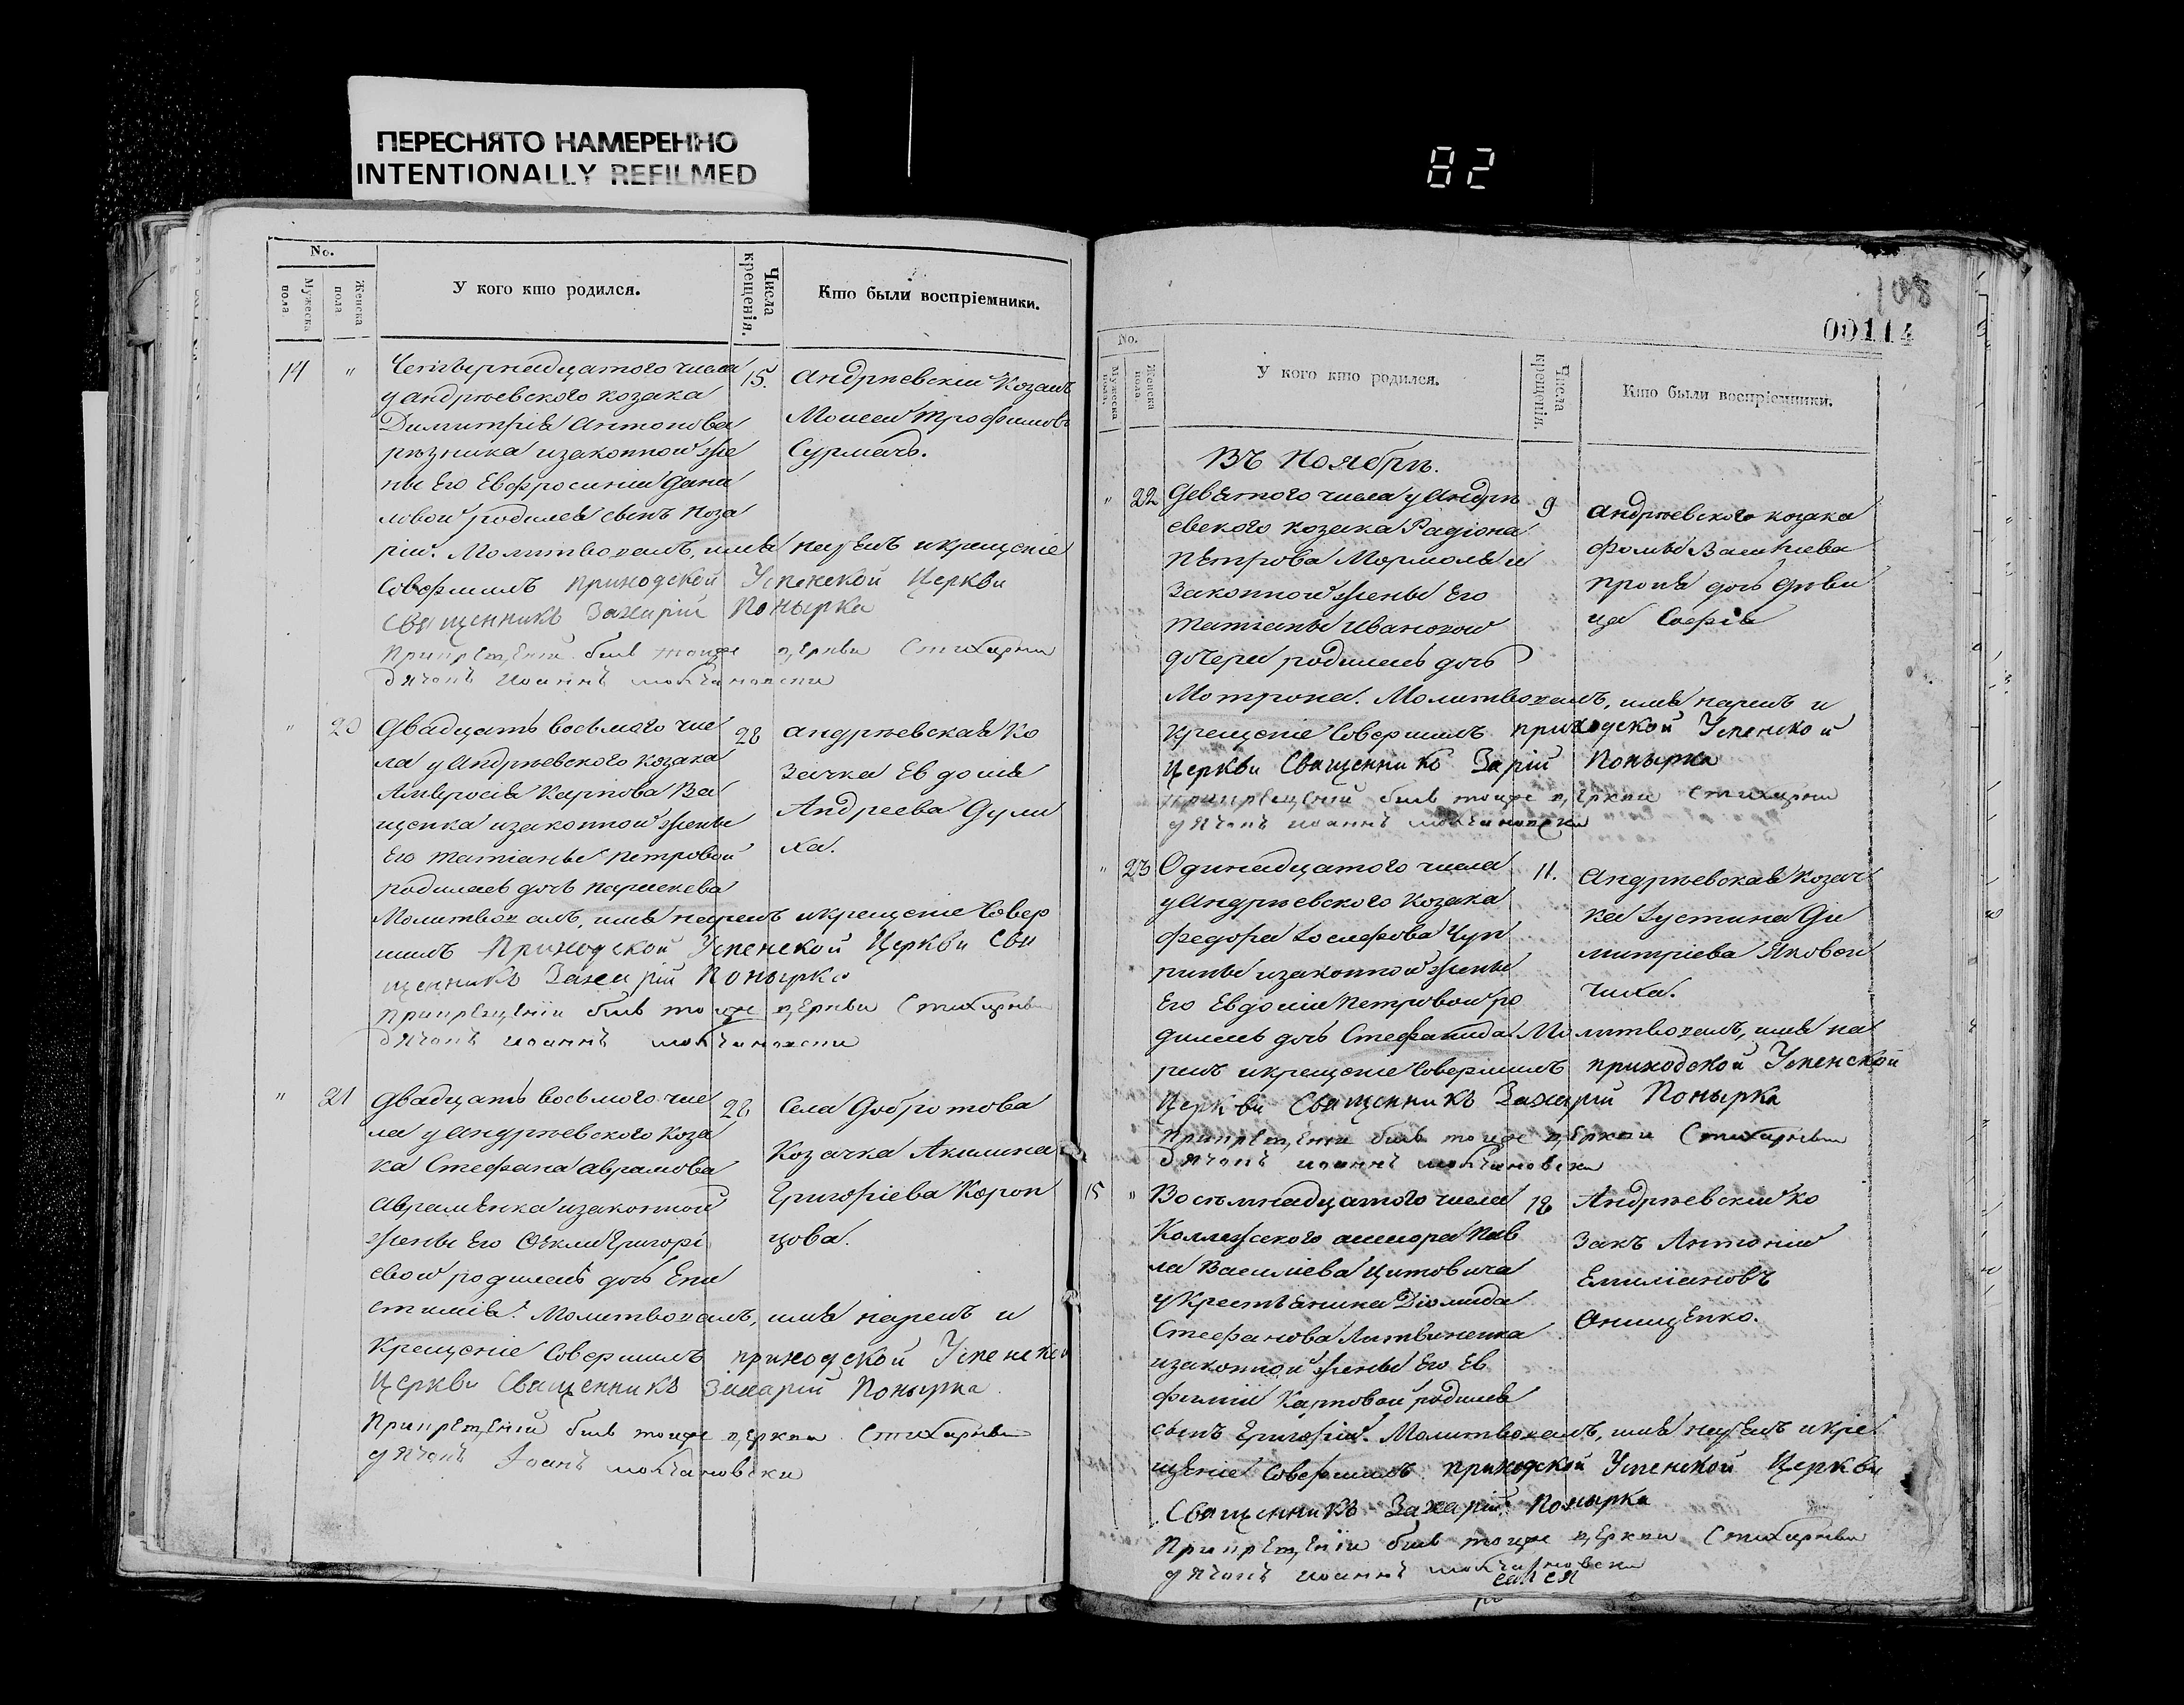 ПЕРЕСНЯТО НАМЕРЕННО
INTENTIONALLY REFILMED
82
No.
Мужеска пола
Женска пола
У кого кто родился.
Числа крещенія.
Кто были воспріемники.
14 " Четвернадцатого числа
у Андрѣевского козака
Димитрія Антонова
Рѣзника и законной же
ны Его Евфросиніи Дани
ловой родился сынъ
Молитвовалъ, имя нарекъ и крещеніе
Совершилъ приходской Успенской Церкви
Священникъ Захарій Понырка
При крещеніи былъ тоиже церкви Стихарный
дячокъ Иоаннъ Молчановски
15. Андрѣевскій Козакъ
Моисей Трофимовъ
Сурмачъ.
" 20 Двадцать восьмого чис
ла у Андрѣевского козака
Амвросія Карпова Ва
щенка и законной жены
Его Татіаны Петровой
родилась дочь Параскева
Молитвовалъ, имя нарекъ и крещеніе Совер
шилъ Приходской Успенской Церкви Свя
щенникъ Захарій Понырка
При крещеніи былъ тоиже церкви Стихарный
дячокъ Иоаннъ Молчановски
28 Андрѣевская Ко
зачка Евдокія
Андреева Дули
ха.
" 21 Двадцать восьмого чис
ла у Андрѣевского Коза
ка Стефана Аврамова
Авраменка и законной
жены Его Ѳеклы Григорі
евой родилась дочь Епи
стимія. Молитвовалъ, имя нарекъ и
Крещеніе Совершилъ приходской Успенской
Церкви Священникъ Захарій Понырка
При крещеніи былъ тоиже церкви Стихарный
дячокъ Іоанъ Молчановски
28 Села Добротова
Козачка Акилина
Григоріева Короп
цова.
108
00114
No.
Мужеска пола.
Женска пола.
У кого кто родился.
Числа крещенія.
Кто были воспріемники.
Въ Ноябрѣ.
" 22 Девятого числа у Андрѣ
евского козака Радіона
Петрова и
Законной жены Его
Татіаны Ивановой
дочери родилась дочь
Мотрона. Молитвовалъ, имя нарекъ и
крещеніе Совершилъ приходской Успенской
Церкви Священникъ Зарій Понырка
При крещеніи былъ тоиже церкви Стихарный
дячокъ Иоаннъ Молчановски
9 Андрѣевского козака
Фомы Василіева
дочь дѣви
ца Софія
" 23 Одинадцатого числа
у Андрѣевского Козака
Федора Іосифова Чуп
рины и законной жены
Его Евдокіи Петровой ро
дилась дочь Стефанида Молитвовалъ, имя на
рекъ и крещеніе Совершилъ приходской Успенской
Церкви Священникъ Захарій Понырка
При крещеніи былъ тоиже церкви Стихарный
дячокъ Иоаннъ Молчановски
11. Андрѣевская Козач
ка Іустина Ди
митріева Яковен
чиха.
15 " Восемнадцатого числа
Коллежского ассесора Пав
ла Василіева Цитовича
у Крестьянина Діомида
Стефанова Литвиненка
и законной жены Его Ев
фиміи Карповой родился
сынъ Григорій. Молитвовалъ, имя нарекъ и кре
щеніе Совершилъ приходской Успенской Церкви
Священникъ Захарій Понырка
При крещеніи былъ тоиже церкви Стихарный
дячокъ Иоаннъ Молчановски
18 Андрѣевскій ко
закъ Антоній
Емиліановъ
Онищенко.